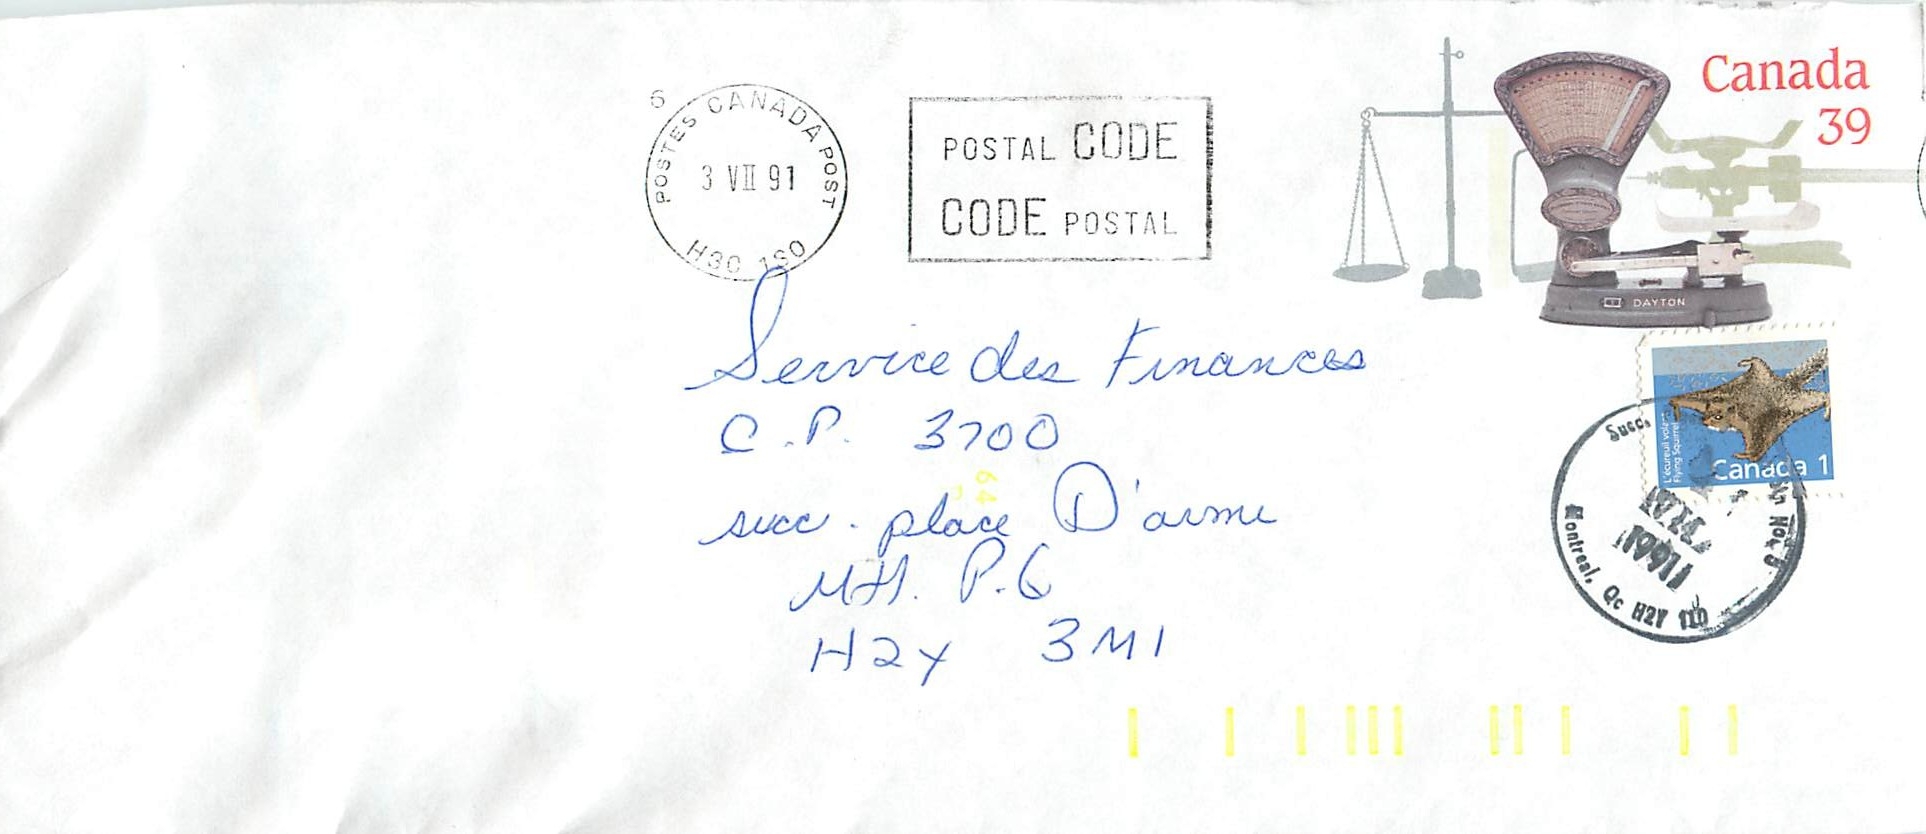 6
POSTES CANADA POST
3 VII 91
H3C 1S0
POSTAL CODE
CODE POSTAL
Canada
39
DAYTON
Service des Finances
C.P. 3700
succ. place D'arme
Mtl. P.Q
H2Y 3M1
L'écureuil volant
Flying Squirrel
Canada 1
Succ.
1991
Montreal, Qc H2Y
64